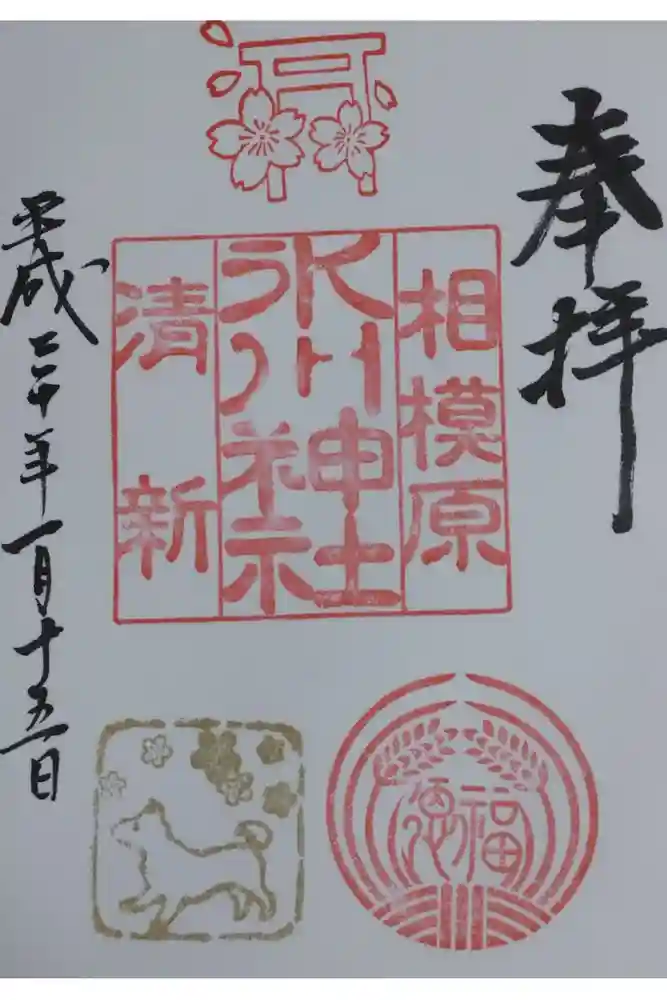 奉拝
相模原
氷川神社
清新
平成三十年一月十五日
福徳